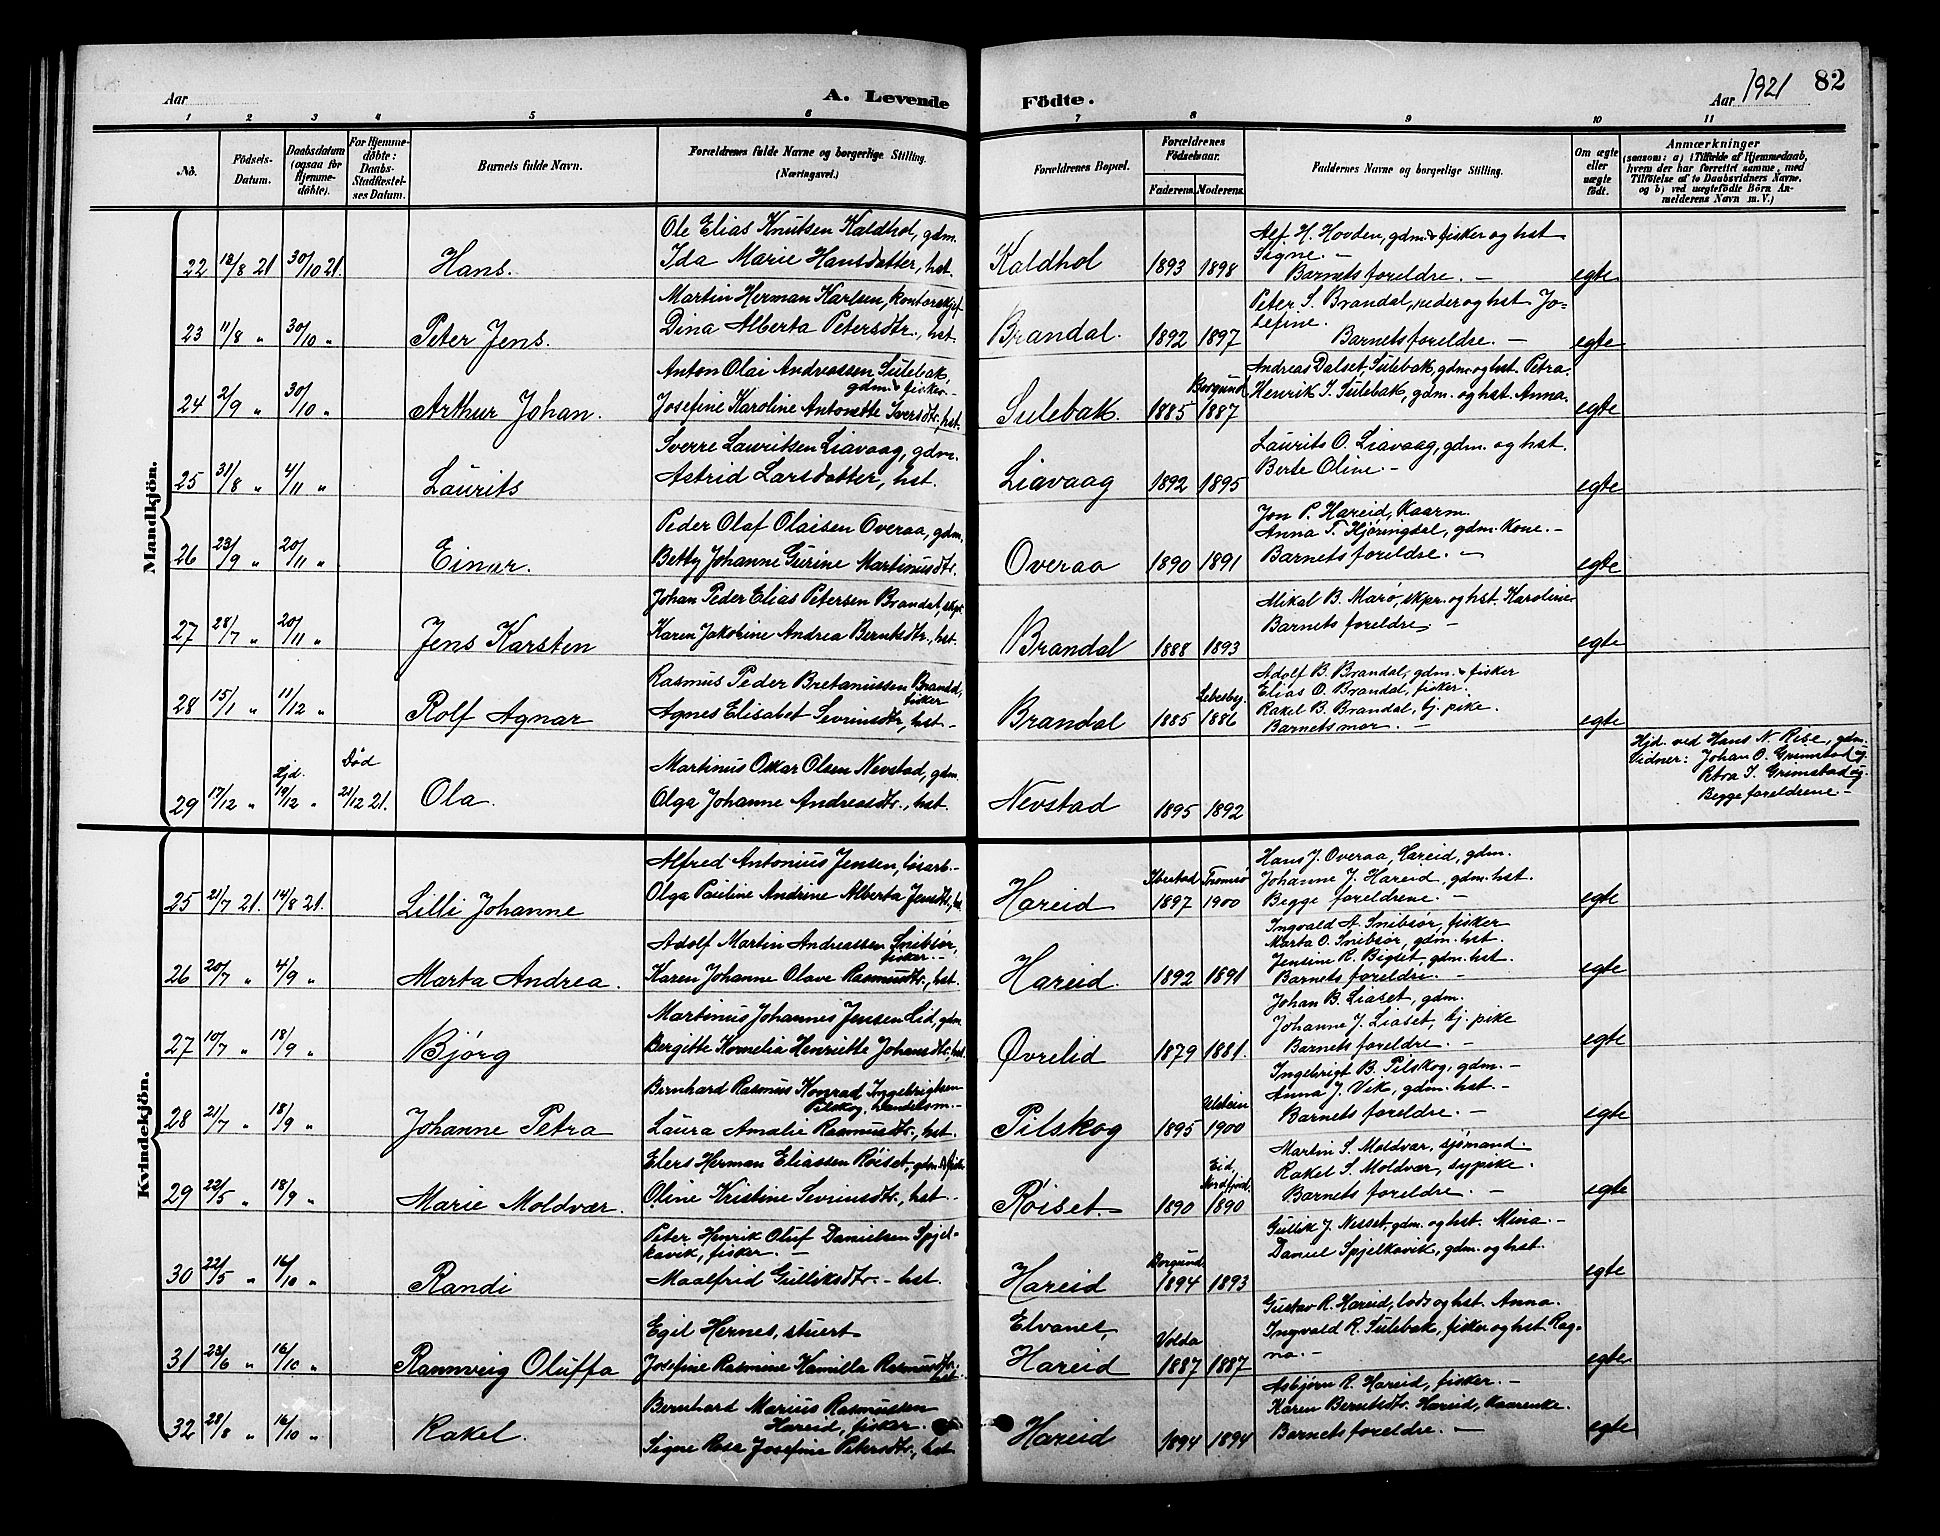 Aar
A. Levende
Födte.
Aar 1921
82
1 2 3 4 5 6 7 8 9 10 11
No.
Födsels-
Datum.
Daabsdatum
(ogsaa for
Hjemme-
döbte).
For Hjemme-
döbte:
Daabs-
Stadfæstel-
ses Datum.
Barnets fulde Navn.
Forældrenes fulde Navne og borgerlige Stilling.
(Næringsvei.)
Forældrenes Bopæl.
Forældrenes
Födselsaar.
Faderens. Moderens.
Faddernes Navne og borgerlige Stilling.
Om ægte
eller
uægte
födt.
Anmærkninger
(saasom: a) i Tilfælde af Hjemmedaab,
hvem der har forrettet samme, med
Tilföielse af to Daabsvidners Navne,
og b) ved uægtefödte Börn An-
melderens Navn m. V.)
Mandkjön.
22 18/8 21 30/10 21. Hans.
Ole Elias Knutsen Kaldhol, gdm.
Ida Marie Hansdatter, hst.
Kaldhol 1893 1898
Alf. H. Hovden, gdm. & fisker og hst
Signe. –
Barnets foreldre. –
egte
23 11/8 " 30/10 " Peter Jens.
Martin Herman Karlsen, kontorskjef
Dina Alberta Petersdtr., hst.
Brandal. 1892 1897
Peter S. Brandal, reder og hst Jo-
sefine.
Barnets foreldre. –
egte
24 2/9 " 30/10 " Arthur Johan.
Anton Olai Andreassen Sulebak,
gdm & fisker. –
Josefine Karoline Antonette Iversdtr., hst.
Sulebak. 1885 Borgund 1887
Andreas Dalset, Sulebak, gdm og hst Petra.
Henrik I. Sulebak, gdm. og hst. Anna.
egte
25 31/8 " 4/11 " Laurits
Sverre Lauritsen Liavaag, gdm.
Astrid Larsdatter, hst.
Liavaag 1892 1895
Laurits O. Liavaag, gdm. og hst.
Berte Oline. –
egte
26 23/9 " 20/11 " Einar.
Peder Olaf Olaisen Overaa, gdm.
Betty Johanne Gurine Martinusdtr.
Overaa 1890 1891
Jon P. Hareid, Kaarm.
Anna T. Hjøringdal, gdm. Kone. –
Barnets foreldre. –
egte
27 28/7 " 20/11 " Jens Karsten
Johan Peder Elias Petersen Brandal, skpr
Karen Jakobine Andrea Berntsdtr., hst.
Brandal 1888 1893
Mikal B. Marø, skpr. og hst. Karoline
Barnets foreldre. –
egte
28 15/1 " 11/12 " Rolf Agnar
Rasmus Peder Bretanussen Brandal,
fisker
Agnes Elisabet Sevrinsdtr, hst –
Brandal 1885 Lebesby 1886
Adolf B. Brandal, gdm. & fisker
Elias O. Brandal, fisker.
Rakel B. Brandal, tj. pike.
Barnets mor. –
egte
29 17/12 " Hjd. 19/12 " Død 21/12 21. Ola.
Martinus Oskar Olsen Nevstad, gdm
Olga Johanne Andreasdtr., hst.
Nevstad 1895 1892
Hjd. ved Hans N. Rise, gdm.
Vidner: Johan O. Grimstad og
Petra I. Grimstad og
Begge foreldrene –
Kvindekjön.
25 21/7 21. 14/8 21. Lilli Johanne
Alfred Antonius Jensen, løsarb. –
Olga Pauline Andrine Alberta Jensdtr., hst.
Hareid Ibestad 1897 Tromsø 1900
Hans J. Overaa, Hareid, gdm.
Johanne J. Hareid, gdm. hst.
Begge foreldrene –
egte
26 20/7 " 4/9 " Marta Andrea.
Adolf Martin Andreassen Snibsør,
fisker. –
Karen Johanne Olave Rasmusdtr., hst.
Hareid. 1892 1891
Ingvald A. Snibsør, fisker
Marta O. Snibsør, gdm. hst.
Jensine R. Bigset, gdm. hst.
Barnets foreldre. –
egte
27 10/7 " 18/9 " Bjørg
Martinus Johannes Jensen Lid, gdm
Bergitte Kornelia Henriette Johansdtr., hst.
Øvrelid 1879 1881.
Johan B. Liaset, gdm.
Johanne J. Liaset, tj. pike
Barnets foreldre. –
egte
28 21/7 " 18/9 " Johanne Petra
Bernhard Rasmus Konrad Ingebrigtsen
Pilskog, handelsm. –
Laura Amalie Rasmusdtr., hst.
Pilskog 1895 Ulstein 1900
Ingebrigt B. Pilskog, gdm. –
Anna J. Vik, gdm. hst. –
Barnets foreldre. –
egte
29 22/5 " 18/9 " Marie Moldvær.
Elers Herman Eliassen Røiset, gdm & fisker
Oline Kristine Sevrinsdtr., hst –
Røiset. 1890 Eid, Nordfjord. 1890
Martin S. Moldvær, sjømand.
Rakel S. Moldvær, sypike.
Barnets foreldre. –
egte
30 22/5 " 16/10 " Randi
Peter Henrik Oluf Danielsen Spjel-
kavik, fisker. –
Maalfrid Gulliksdtr. – hst.
Hareid Borgund 1894 1893
Gullik J. Nesset, gdm. og hst. Mina. –
Daniel Spjelkavik, gdm. og hst.
egte
31 23/6 " 16/10 " Rannveig Oluffa
Egil Hernes, stuert
Josefine Rasmine Kamilla Rasmusdtr.
hst.
Elvanes,
Hareid Volda 1887 1887
Gustav R. Hareid, lods og hst. Anna.
Ingvald R. Sulebak, fisker og hst. Rag-
na. –
egte
32 28/8 " 16/10 " Rakel.
Bernhard Marius Rasmussen
Hareid, fisker.
Signe Rosa Josefine Petersdtr., hst
Hareid 1894 1894
Asbjørn R. Hareid, fisker. –
Karen Berntsdtr. Hareid, Kaarenke.
Barnets foreldre. –
egte